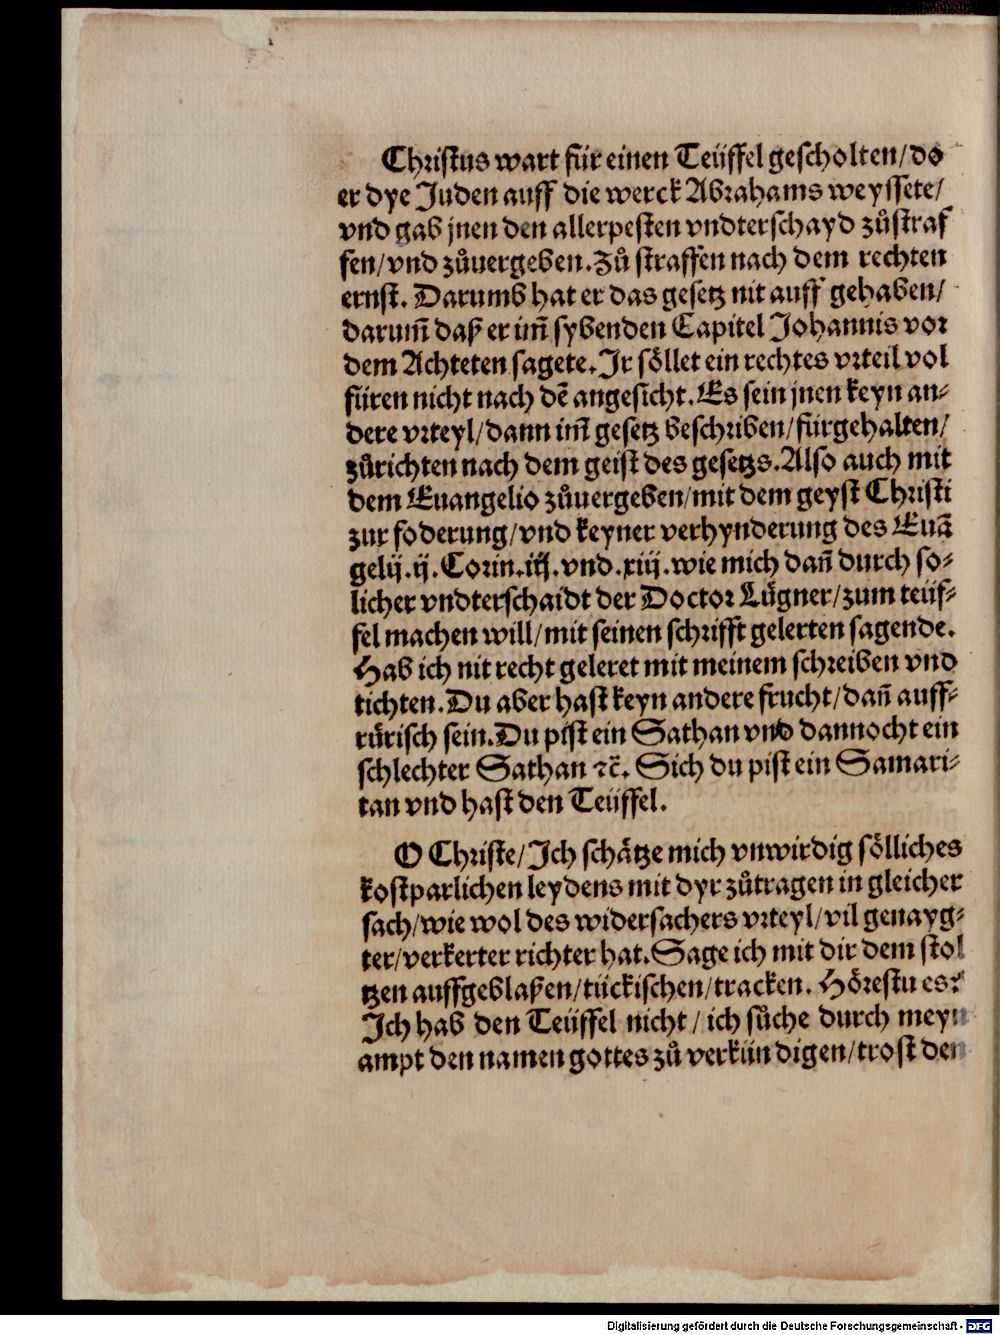 Christus wart für einen Teüffel gescholten/do
er dye Juden auff die werck Abrahams weyssete/
vnd gab jnen den allerpesten vndterschayd zůstraf
fen/vnd zůuergeben. Zů straffen nach dem rechten
ernst. Darumb hat er das gesetz nit auff gehaben/
darum̃ daß er im̃ sybenden Capitel Johannis vor
dem Achteten sagete. Jr söllet ein rechtes vrteil vol
füren nicht nach dẽ angesicht. Es sein jnen keyn an⸗
dere vrteyl/dann im̃ gesetz beschriben/fürgehalten/
zůrichten nach dem geist des gesetzs. Also auch mit
dem Euangelio zůuergeben/mit dem geyst Christi
zur foderung/vnd keyner verhynderung des Euã
gelij. ij. Corin. iij. vnd. xiij. wie mich dañ durch so⸗
licher vndterschaidt der Doctor Lügner/zum teüf⸗
fel machen will/mit seinen schrifft gelerten sagende.
Hab ich nit recht geleret mit meinem schreiben vnd
tichten. Du aber hast keyn andere frucht/dañ auff⸗
rürisch sein. Du pist ein Sathan vnd dannocht ein
schlechter Sathan ⁊c̃. Sich du pist ein Samari⸗
tan vnd hast den Teüffel.
O Christe/Jch schätze mich vnwirdig sölliches
kostparlichen leydens mit dyr zůtragen in gleicher
sach/wie wol des widersachers vrteyl/vil genayg⸗
ter/verkerter richter hat. Sage ich mit dir dem stol
tzen auffgeblaßen/tückischen/tracken. Hörestu es?
Jch hab den Teüffel nicht/ich sůche durch meyn
ampt den namen gottes zů verkündigen/trost den
Digitalisierung gefördert durch die Deutsche Forschungsgemeinschaft - DFG